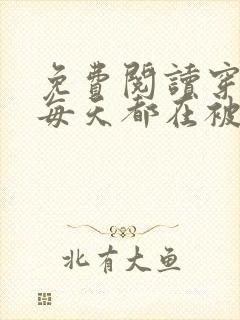 免費閱讀穿
每天都在被
北有大魚